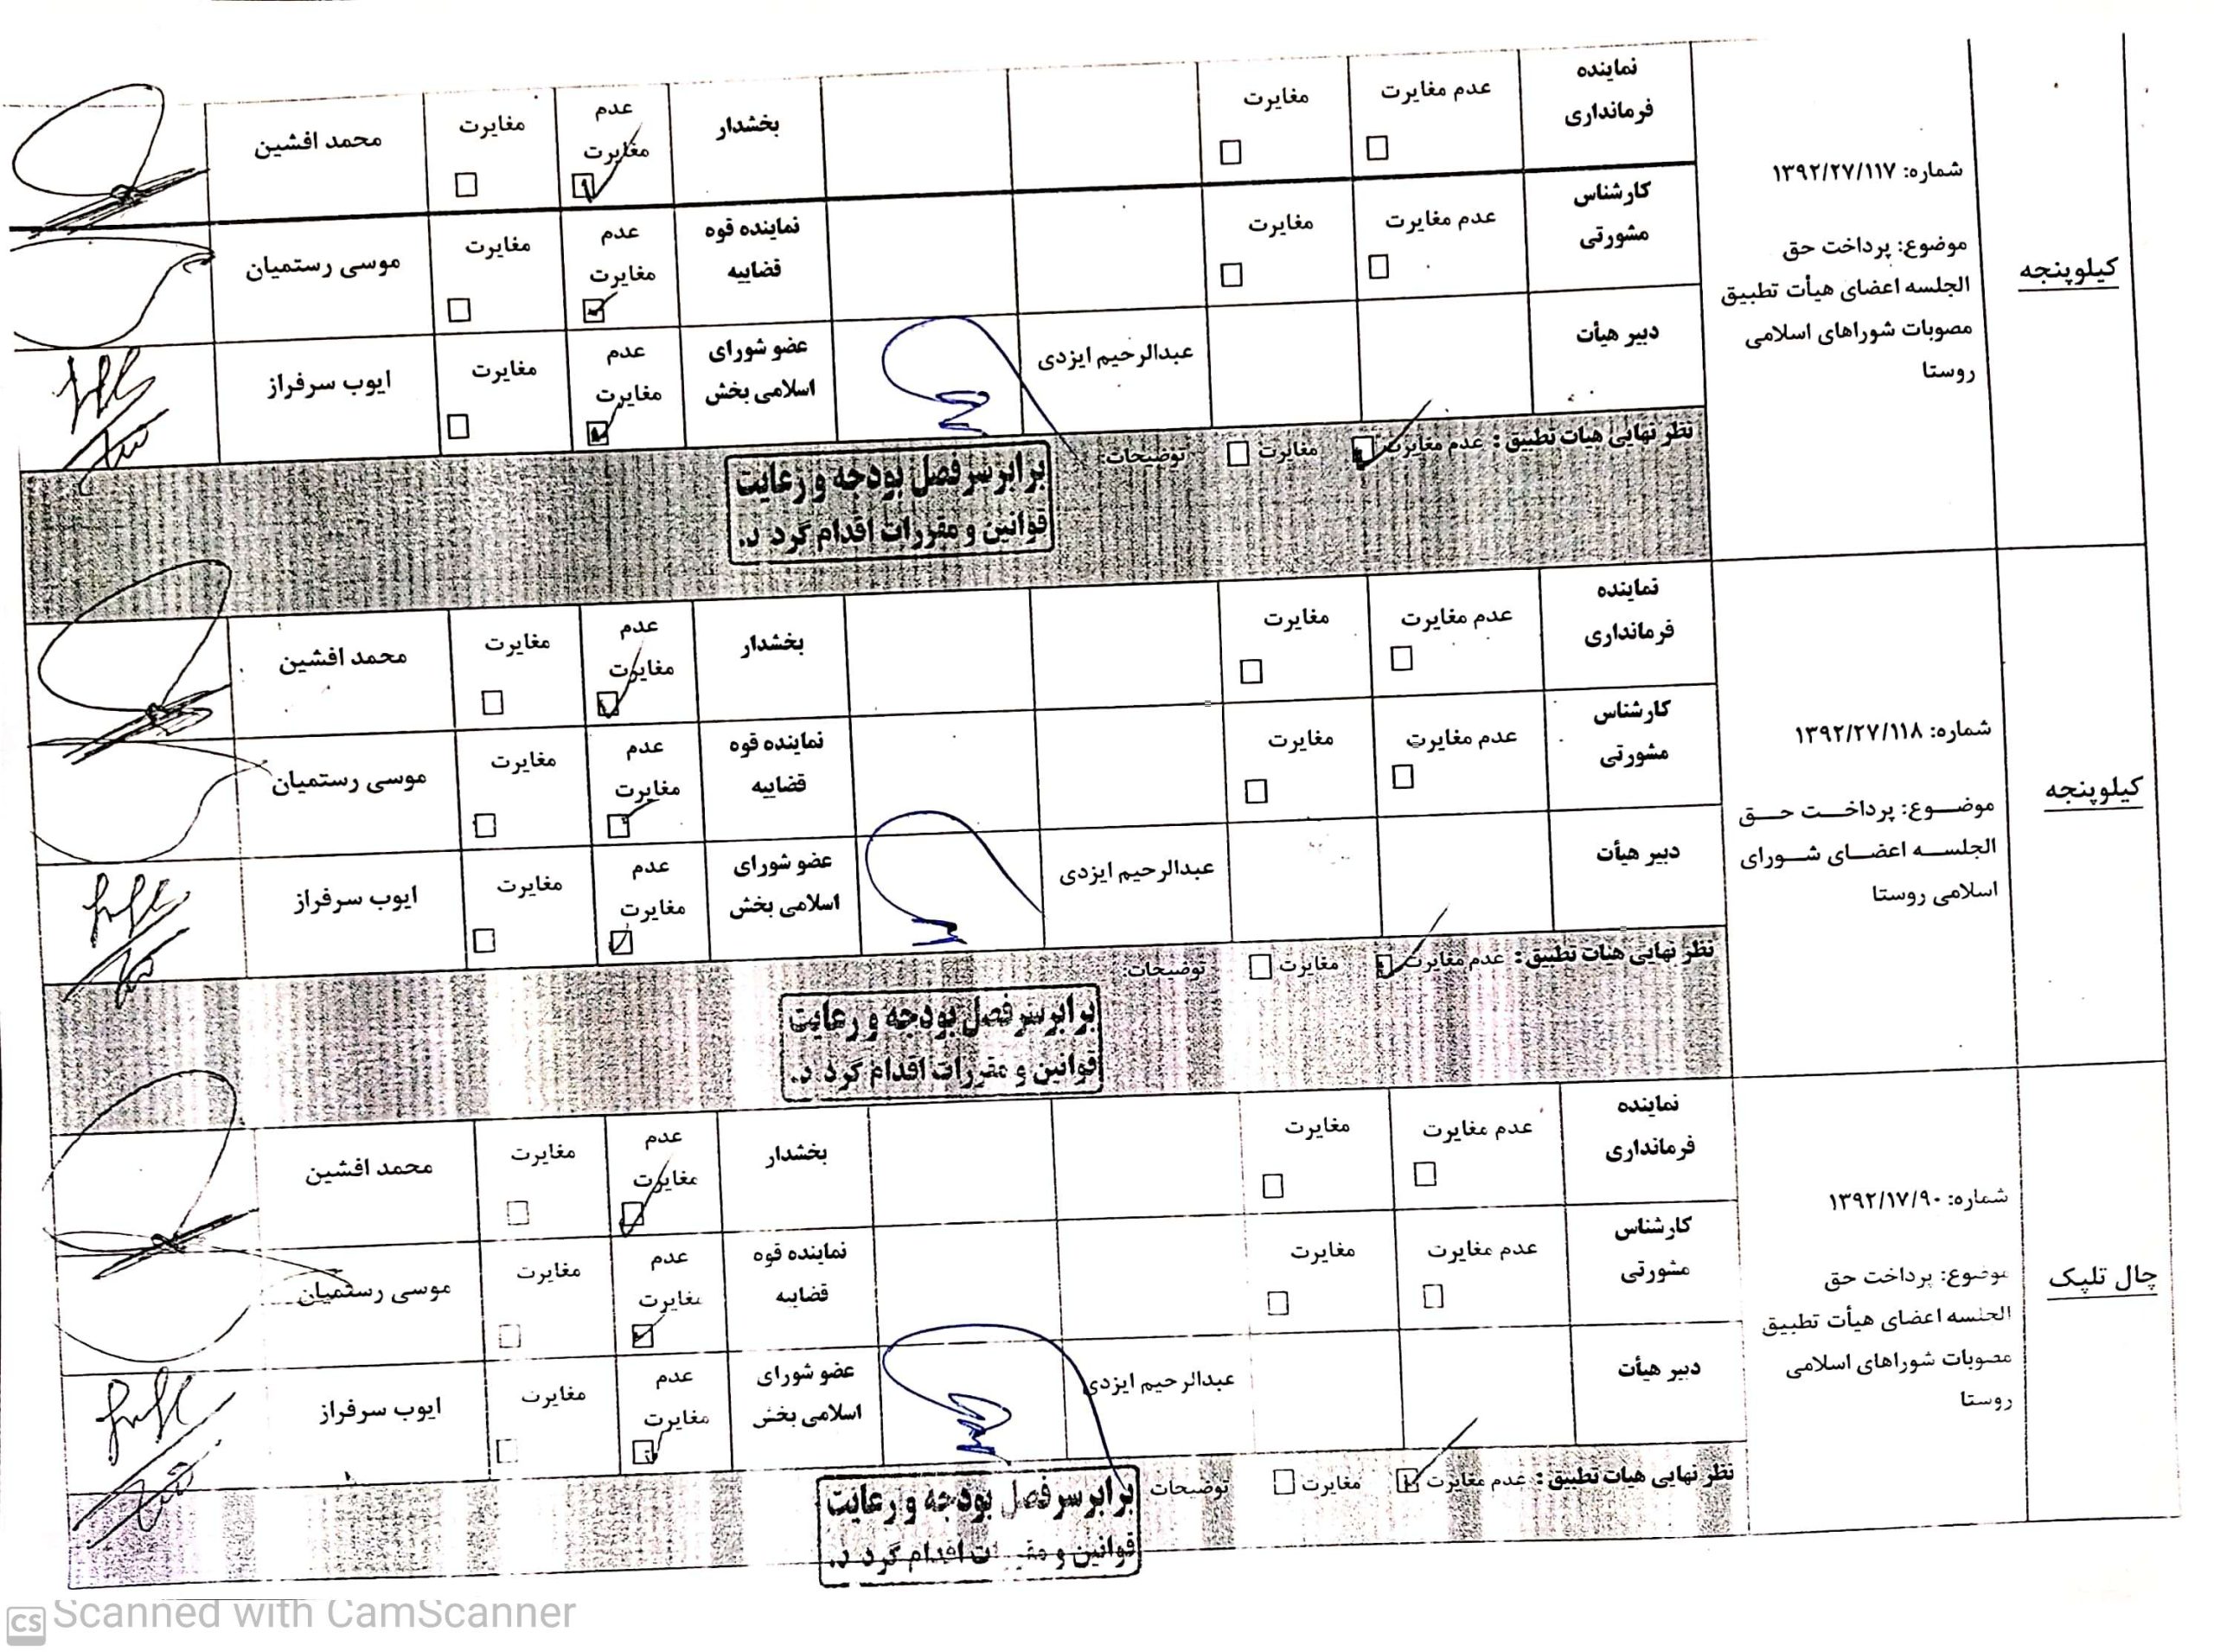 کیلوپنجه
شماره: ۱۳۹۲/۲۷/۱۱۷
موضوع: پرداخت حق
الجلسه اعضای هیأت تطبیق
مصوبات شوراهای اسلامی
روستا
نماینده
فرمانداری
عدم مغایرت
مغایرت
بخشدار
عدم
مغایرت
مغایرت
محمد افشین
کارشناس
مشورتی
عدم مغایرت
مغایرت
نماینده قوه
قضاییه
عدم
مغایرت
مغایرت
موسی رستمیان
دبیر هیأت
عبدالرحیم ایزدی
عضو شورای
اسلامی بخش
عدم
مغایرت
مغایرت
ایوب سرفراز
نظر نهایی هیات تطبیق: عدم مغایرت مغایرت توضیحات:
برابر سرفصل بودجه و رعایت
قوانین و مقررات اقدام گردد.
کیلوپنجه
شماره: ۱۳۹۲/۲۷/۱۱۸
موضوع: پرداخت حق
الجلسه اعضای شورای
اسلامی روستا
نماینده
فرمانداری
عدم مغایرت
مغایرت
بخشدار
عدم
مغایرت
مغایرت
محمد افشین
کارشناس
مشورتی
عدم مغایرت
مغایرت
نماینده قوه
قضاییه
عدم
مغایرت
مغایرت
موسی رستمیان
دبیر هیأت
عبدالرحیم ایزدی
عضو شورای
اسلامی بخش
عدم
مغایرت
مغایرت
ایوب سرفراز
نظر نهایی هیات تطبیق: عدم مغایرت مغایرت توضیحات:
برابر سرفصل بودجه و رعایت
قوانین و مقررات اقدام گردد.
چال تلپک
شماره: ۱۳۹۲/۱۷/۹۰
موضوع: پرداخت حق
الجلسه اعضای هیأت تطبیق
مصوبات شوراهای اسلامی
روستا
نماینده
فرمانداری
عدم مغایرت
مغایرت
بخشدار
عدم
مغایرت
مغایرت
محمد افشین
کارشناس
مشورتی
عدم مغایرت
مغایرت
نماینده قوه
قضاییه
عدم
مغایرت
مغایرت
موسی رستمیان
دبیر هیأت
عبدالرحیم ایزدی
عضو شورای
اسلامی بخش
عدم
مغایرت
مغایرت
ایوب سرفراز
نظر نهایی هیات تطبیق: عدم مغایرت مغایرت توضیحات
برابر سرفصل بودجه و رعایت
قوانین و مقررات اقدام گردد.
CS Scanned with CamScanner